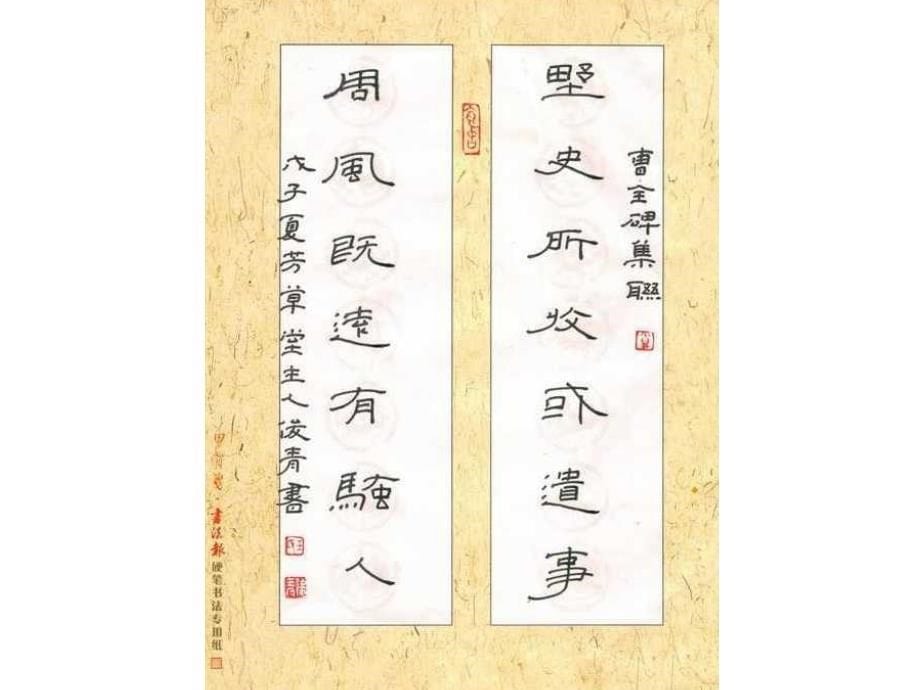 曹全碑集聯
野史所收或遺事
周風既遠有騷人
戊子夏芳草堂主人俊青書
書法報
硬笔书法专用纸